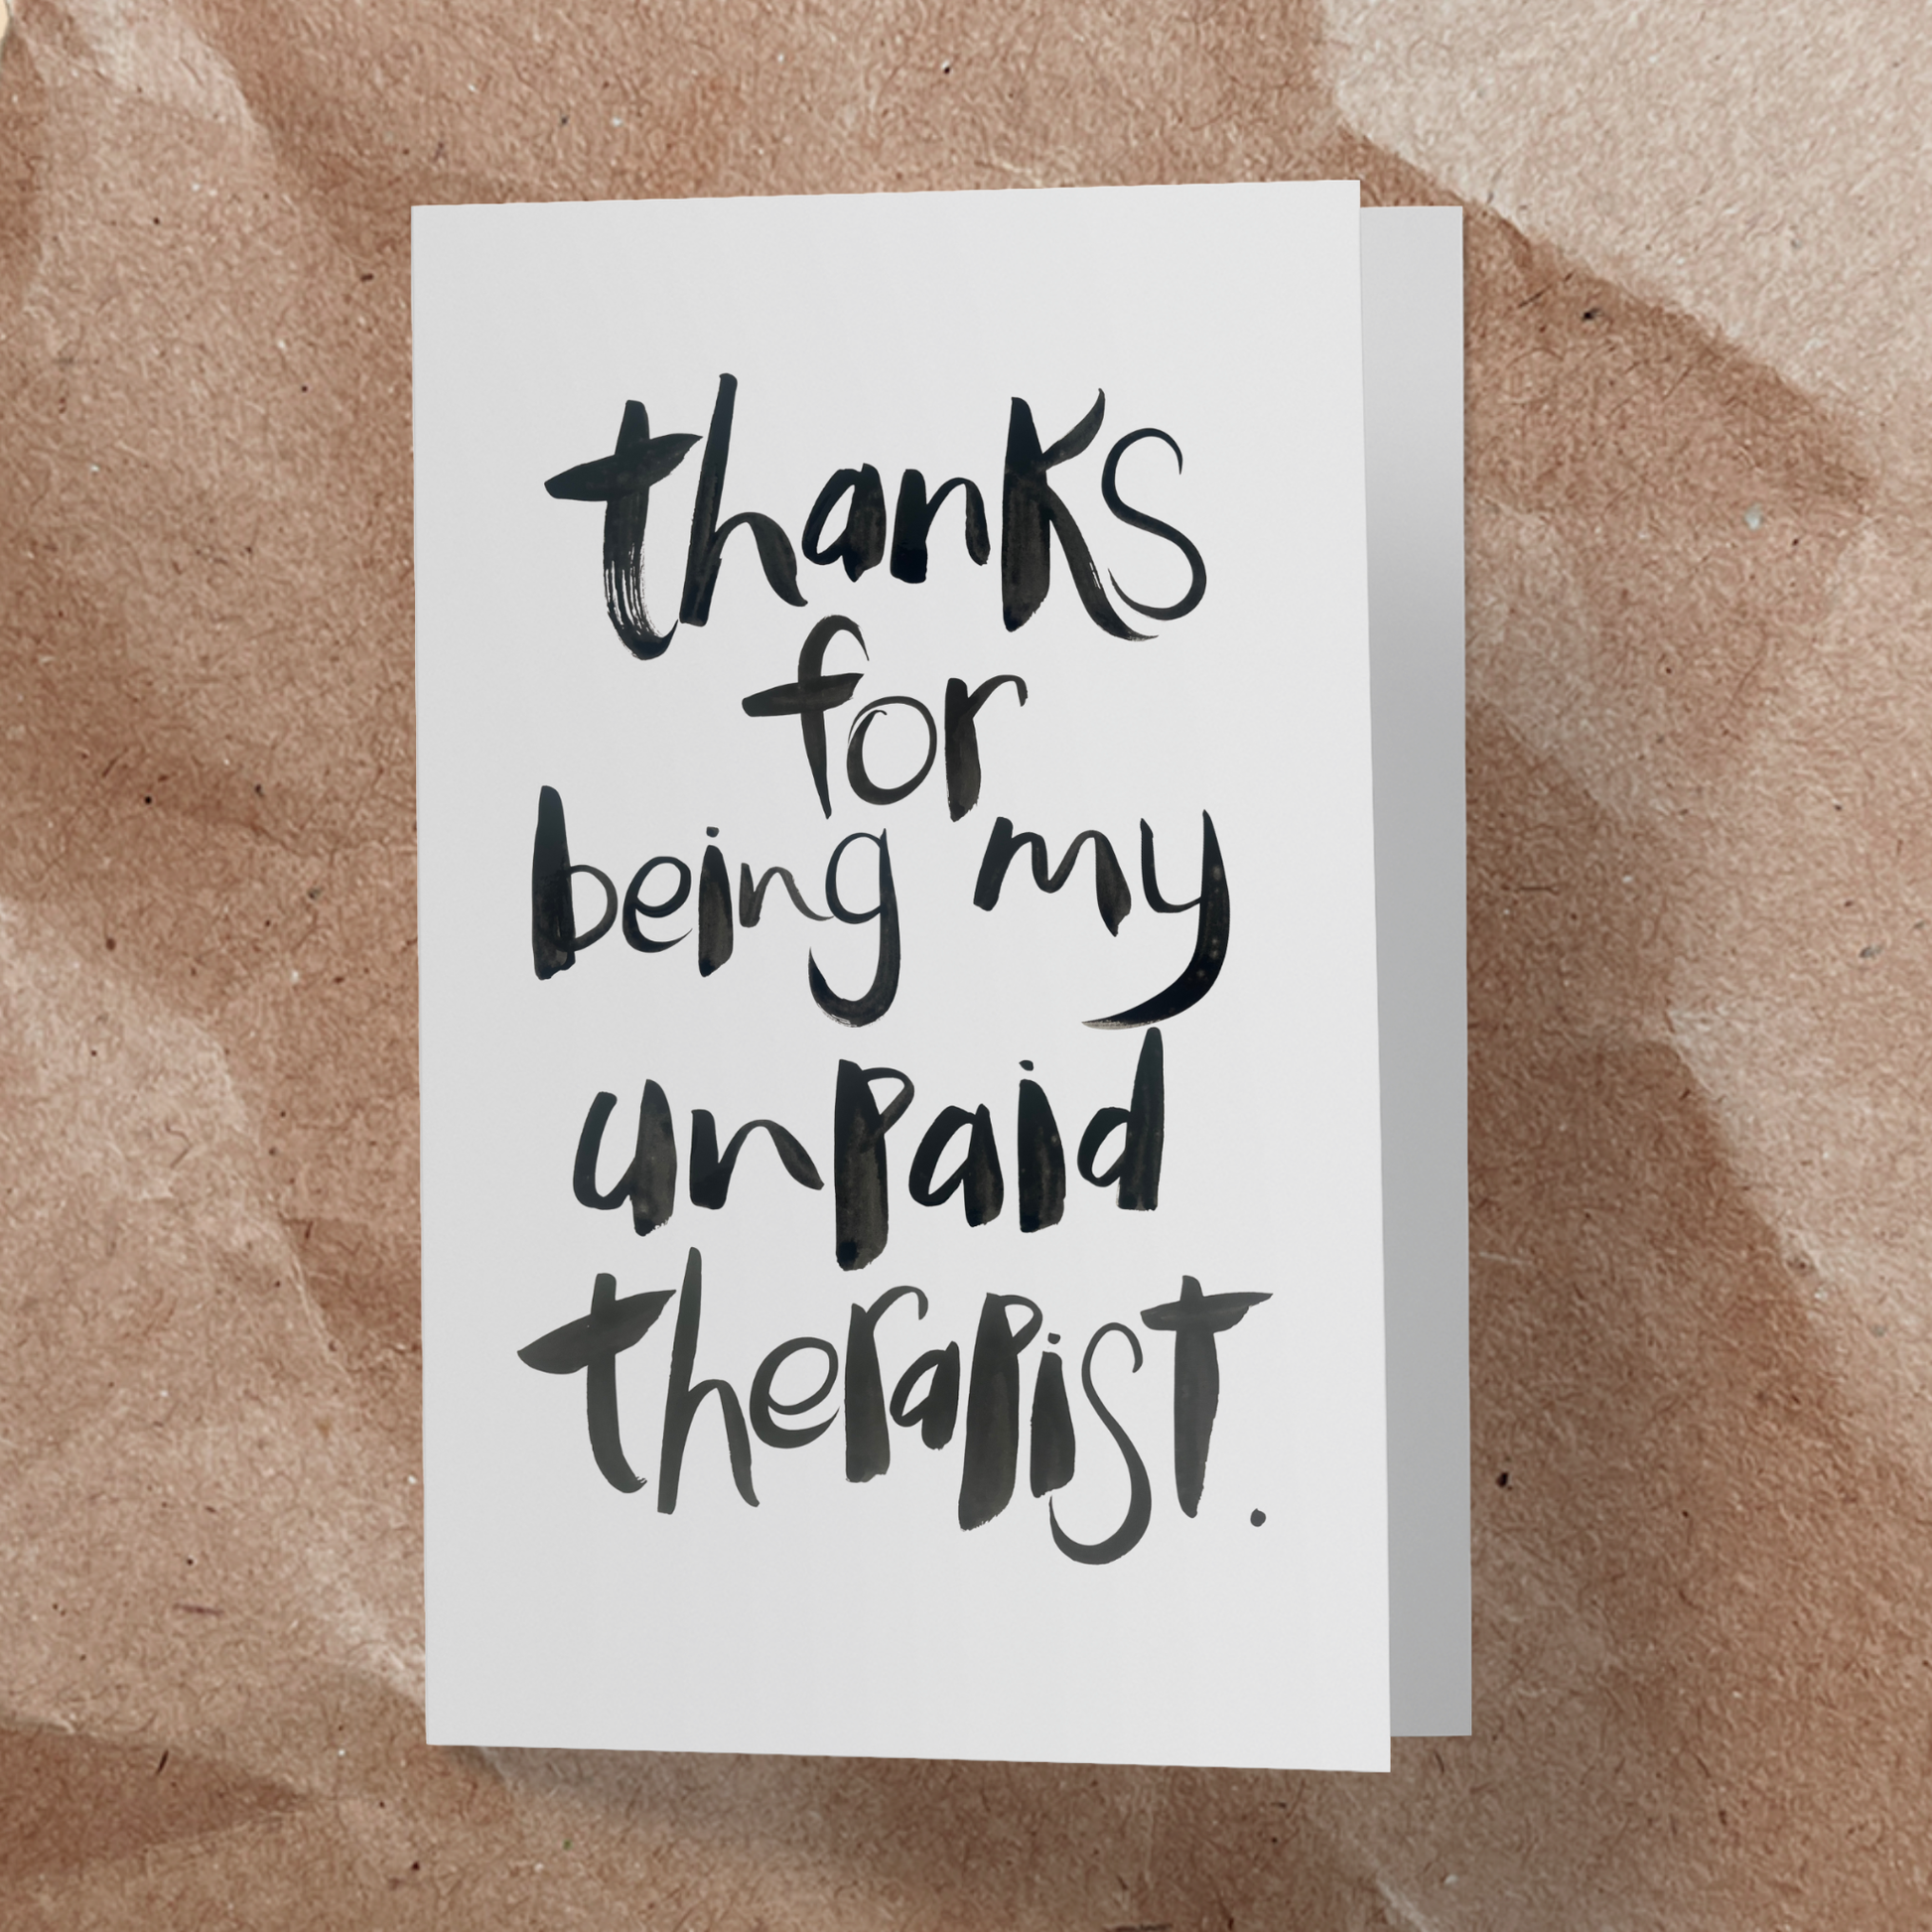 thanks
for
being my
unpaid
therapist.